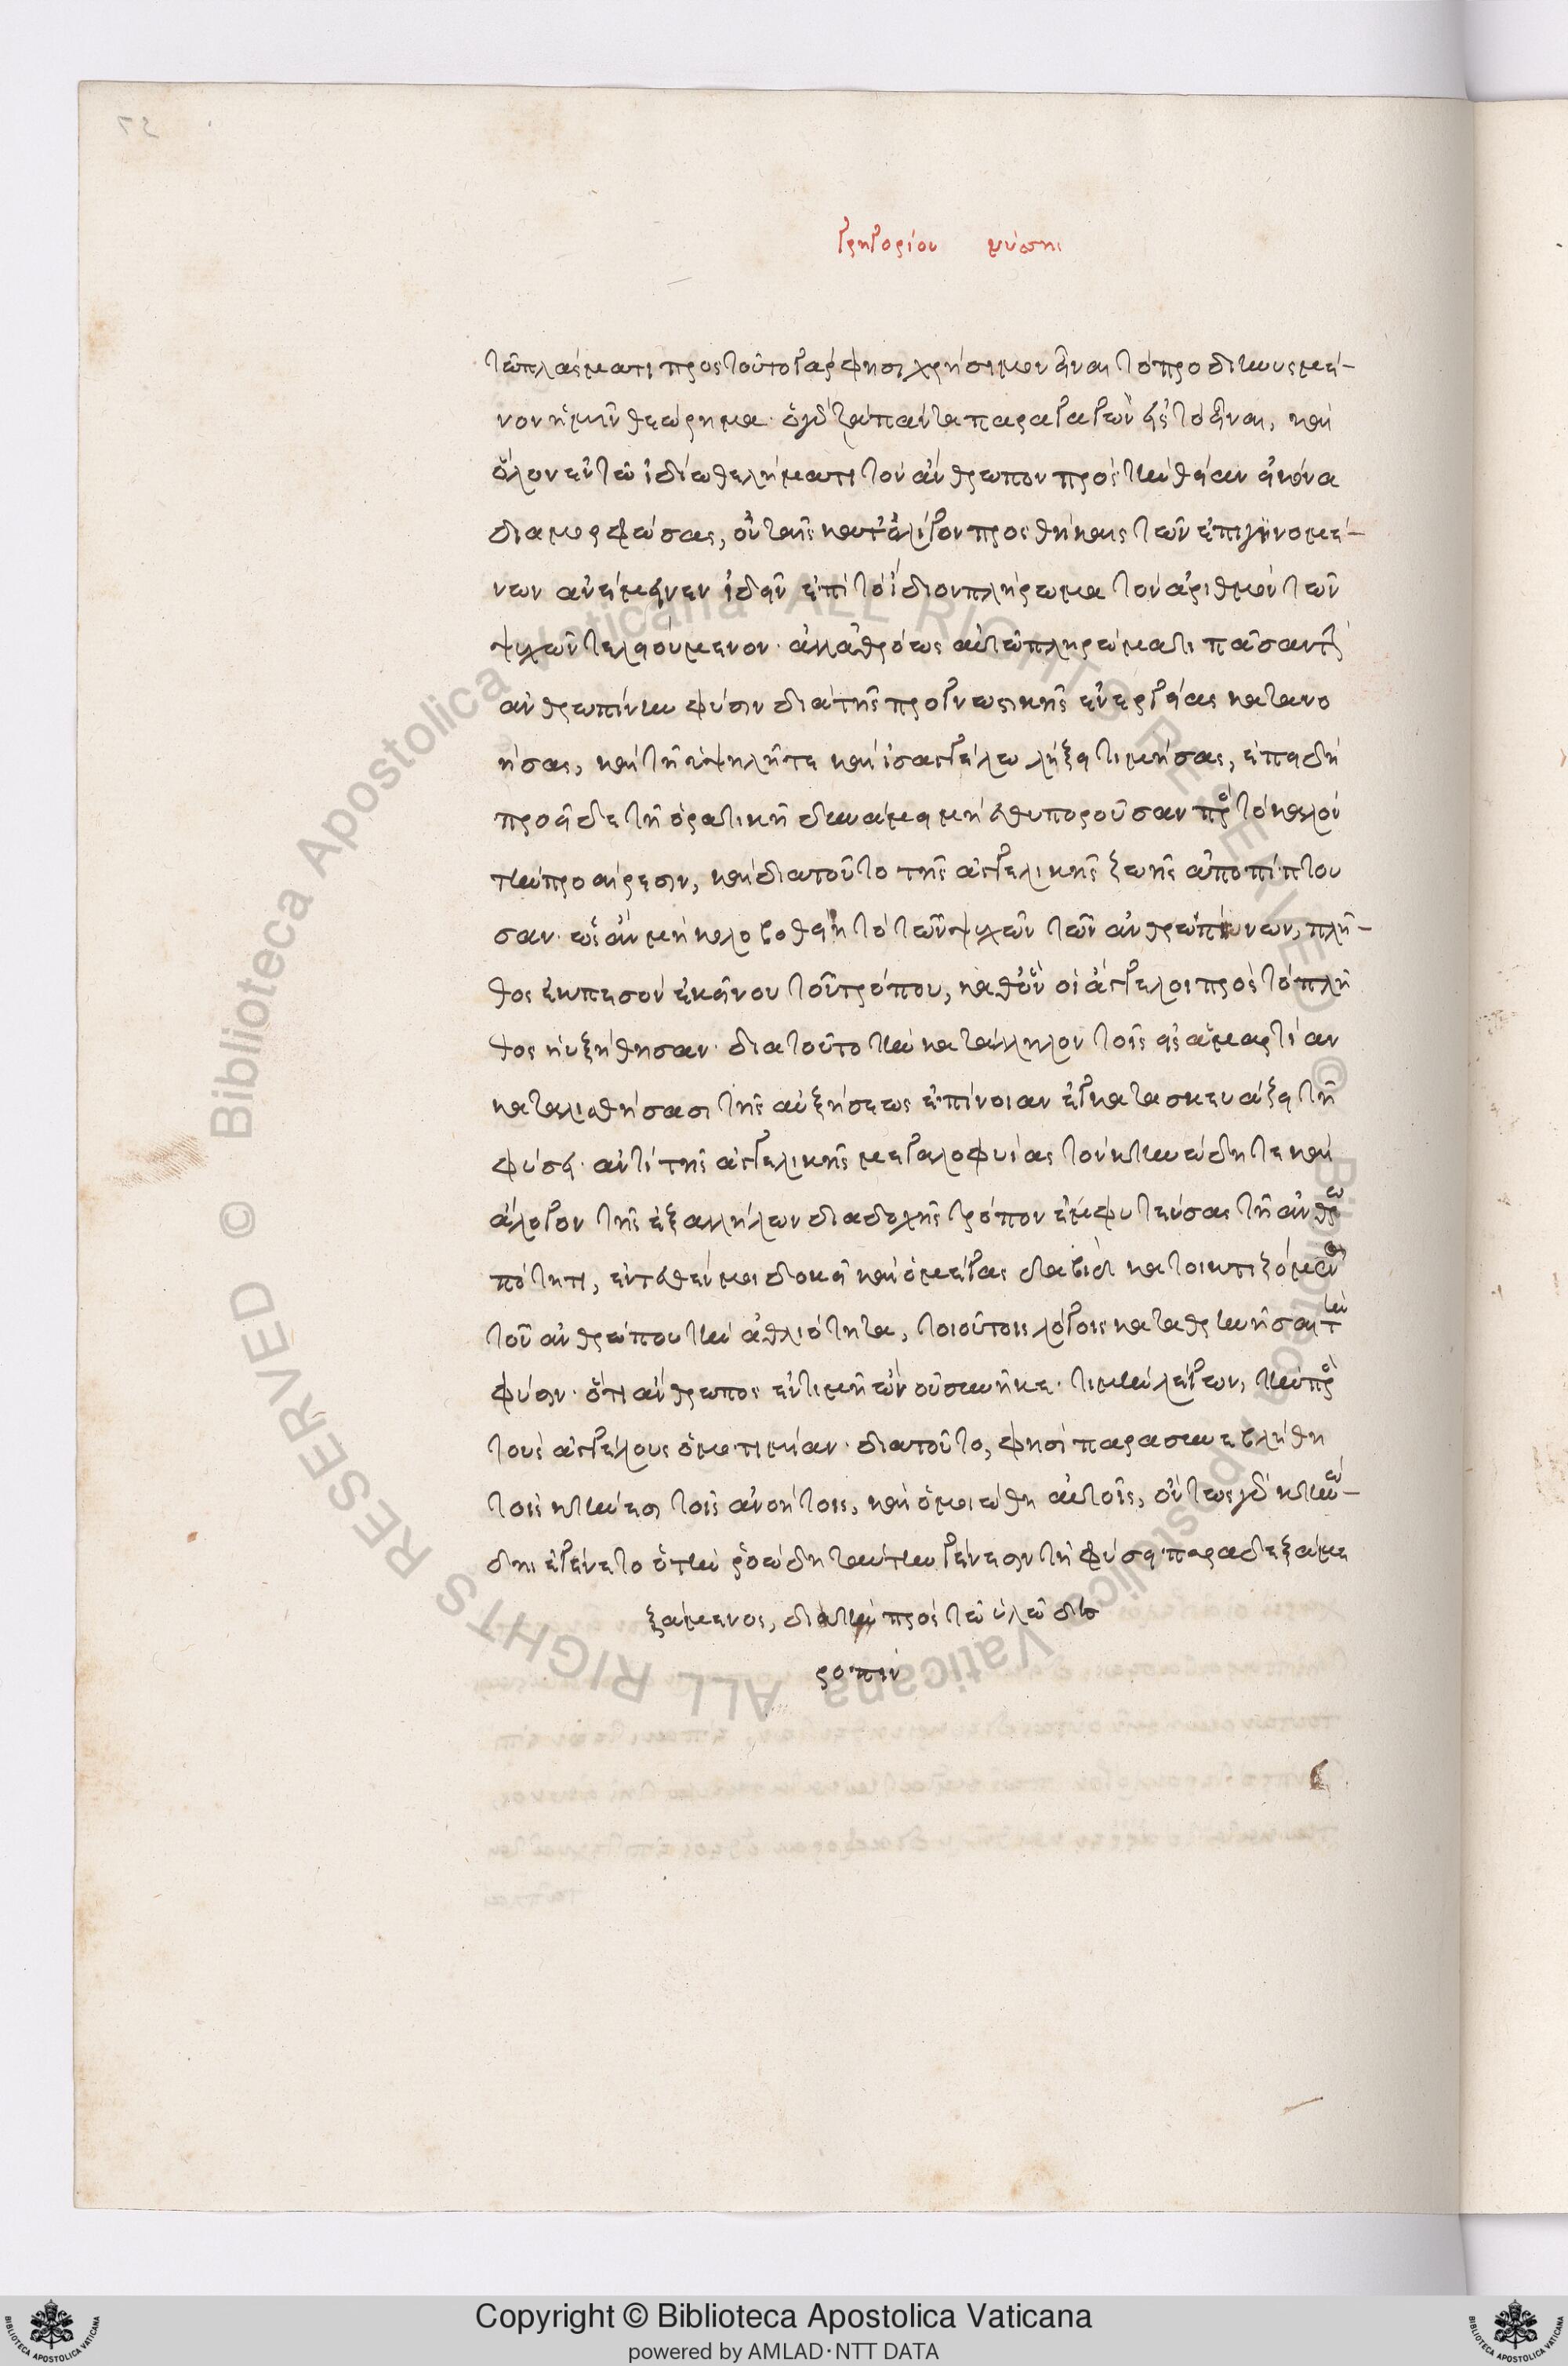 Γρηγορίου νύσης
τῶ πλάσματι πρὸς τοῦτο γάρ φησι χρήσιμον εἶναι τὸ προδιηυσμέ-
νον ἡμῖν θεώρημα· ὁ γὰρ τὰ πάντα παραγαγὼν εἰς τὸ εἶναι, καὶ
ὅλον ἐν τῶ ἰδίω θελήματι τὸν ἄνθρωπον πρὸς τὴν θείαν εἰκόνα
διαμορφώσας, οὐ ταῖς κατ' ὀλίγον προσθήκαις τῶν ἐπιγινομέ-
νων ἀνέμεινεν ἰδεῖν ἐπὶ τὸ ἴδιον πλήρωμα τὸν ἀριθμὸν τῶν
ψυχῶν τελειούμενον· ἀλλ' ἀθρόως αὐτῶ πληρώματι πᾶσαν τὴν
ἀνθρωπίνην φύσιν διὰ τῆς προγνωστικῆς ἐνεργείας κατανο
ήσας, καὶ τῆ ὑψηλῆ τε καὶ ἰσαγγέλω λήξει τιμήσας, ἐπειδὴ
προεῖδε τῆ ὁρατικῆ δυνάμει μὴ εὐθυποροῦσαν πρὸς τὸ καλὸν
τὴν προαίρεσιν, καὶ διατοῦτο τῆς ἀγγελικῆς ζωῆς ἀποπίπτου
σαν· ὡς ἂν μὴ κολοβοθείη τὸ τῶν ψυχῶν τῶν ἀνθρωπίνων, πλῆ-
θος ἐκπεσὸν ἐκείνου τοῦ τρόπου, καθ' ὃν οἱ ἄγγελοι πρὸς τὸ πλῆ
θος ηὐξήθησαν· διατοῦτο τὴν κατάλληλον τοῖς εἰς ἁμαρτίαν
κατολισθήσασι τῆς αὐξήσεως ἐπίνοιαν ἐγκατασκευάζει τῆ
φύσει· ἀντὶ τῆς ἀγγελικῆς μεγαλοφυίας τὸν κτηνώδη τε καὶ
ἄλογον τῆς ἐξ ἀλλήλων διαδοχῆς τρόπον ἐμφυτεύσας τῆ ἀνθρω
πότητι, ἐντεῦθέν μοι δοκεῖ καὶ ὁ μέγας δαβὶδ κατοικτιζόμενος
τοῦ ἀνθρώπου τὴν ἀθλιότητα, τοιούτοις λόγοις καταθρηνῆσαι τὴν
φύσιν· ὅτι ἄνθρωπος ἐν τιμῆ ὢν οὐ συνῆκε· τιμὴν λέγων, τὴν πρὸς
τοὺς ἀγγέλους ὁμοτιμίαν· διατοῦτο, φησὶ παρασυνεβλήθη
τοῖς κτήνεσι τοῖς ἀνοήτοις, καὶ ὁμοιώθη αὐτοῖς, ὄντως γὰρ κτηνώ-
δης ἐγένετο ὁ τὴν ῥοώδη ταύτην γένεσιν τῆ φύσει παραδεξάμε
ξάμενος, διὰ τὴν πρὸς τὸ ὑλῶδες
ροπὴν
Copyright © Biblioteca Apostolica Vaticana
powered by AMLAD·NTT DATA
© Biblioteca Apostolica Vaticana ALL RIGHTS RESERVED
© Biblioteca Apostolica Vaticana ALL RIGHTS RESERVED